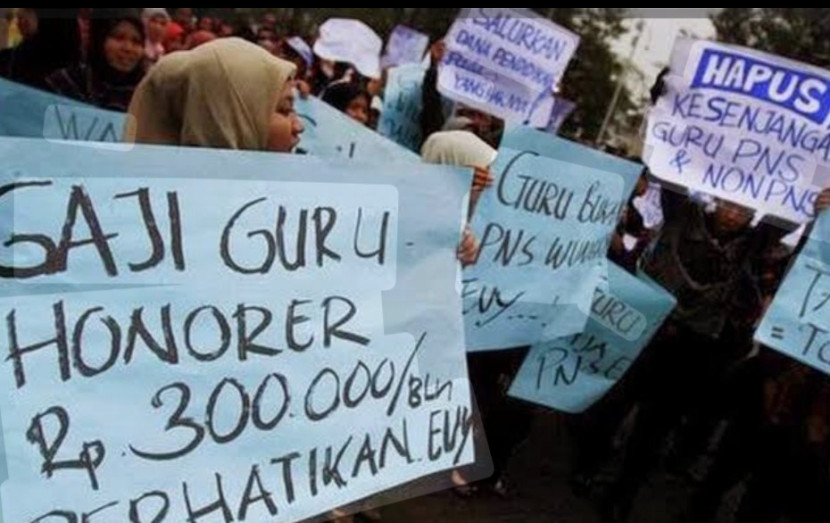 GAJI GURU
HONORER
Rp. 300.000/BLN
PERHATIKAN EUY
WA
SALURKAN
DANA PENDIDIKAN
YANG
HAPUS
KESENJANGA
GURU PNS
& NON PNS
GURU BUKA
PNS
EUY....!
GURU
PNS
= TO